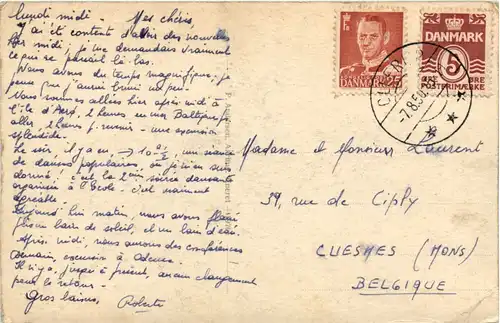 Lundi midi - Mes chéris,
J'ai été content d'avoir des nouvelles
hier midi, je me demandais vraiment
ce qui se passait là-bas.
Nous avons du temps magnifique,
peux que j'aurai bruni un peu.
Nous sommes allées hier après-midi à
l'île d'Aerö, 2 heures en mer Baltique pr
aller, 2 heures pr revenir - une excursion
splendide.
Le soir, il y a eu → 10h 1/2, une séance
de danses populaires où je t'en suis
donné! c'est la 2ème soirée dansante
organisée à l'école - c'est vraiment
agréable.
Aujourd'hui matin, nous avons
bain de soleil, et un bain d'eau.
Après-midi, nous aurons des conférences
Demain, excursion à Odense.
Il n'y a, jusqu'à présent, aucun changement
pour le retour.
Gros baisers, Roberte
DANMARK 25
DANMARK
5
ØRE ØRE
POSTFRIMÆRKE
-7.8.50
Madame et Monsieur Laurent
59, rue de Ciply
CUESMES (MONS)
BELGIQUE